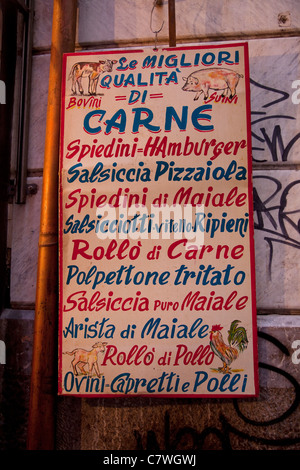 Le MIGLIORI
QUALITÀ
DI
BOVINI
SUINI
CARNE
Spiedini-HAmburger
Salsiccia Pizzaiola
Spiedini di Maiale
Salsicciotti vitello Ripieni
Rollò di Carne
Polpettone tritato
Salsiccia PURO Maiale
Arista di Maiale
Rollò di Pollo
Ovini-Capretti e Polli
alamy
Image ID: C7WGWJ
www.alamy.com